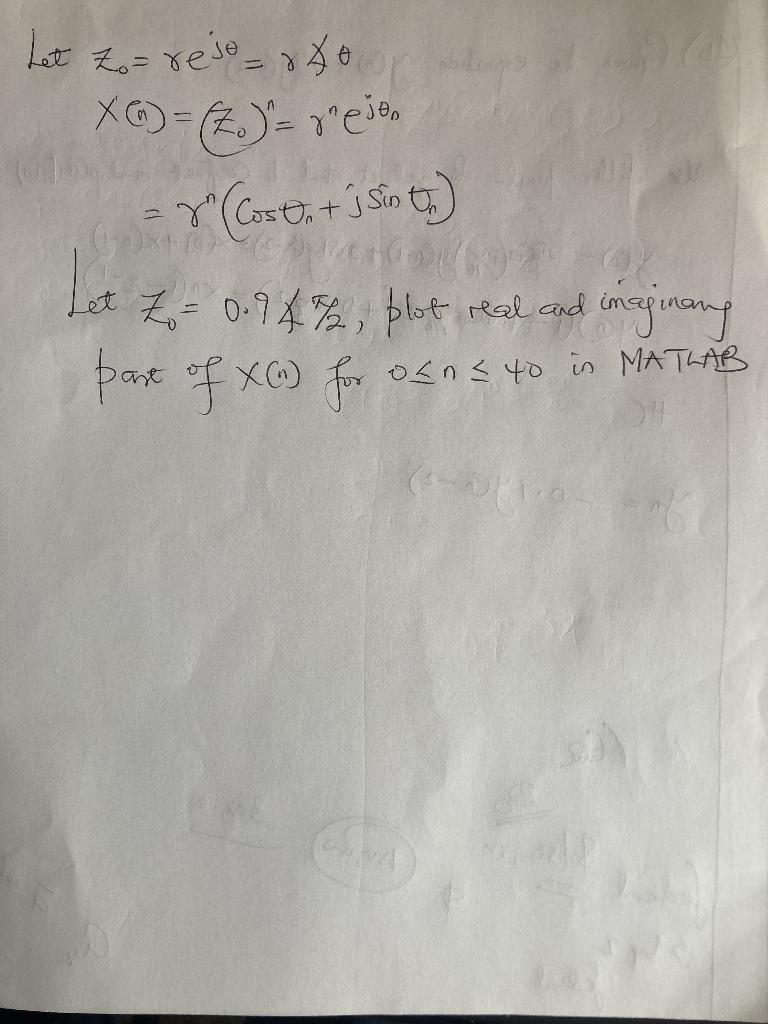 Let Z₀ = re^jθ = r∡θ
X(n) = (Z₀)ⁿ = rⁿe^jθn
= rⁿ(Cosθn + jSinθn)
Let Z₀ = 0.9∡π/2, plot real and imaginary
part of X(n) for 0≤n≤40 in MATLAB